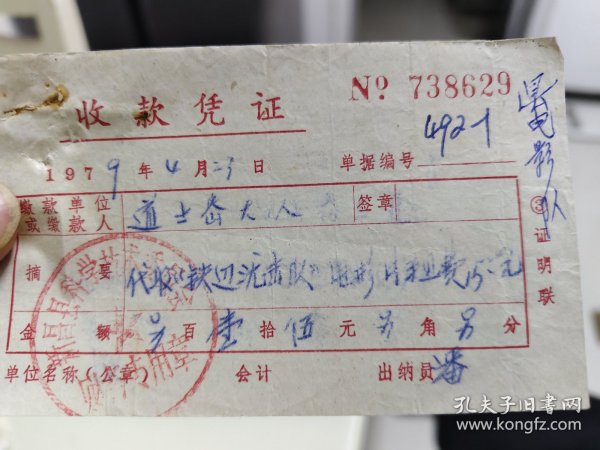 收款凭证
№ 738629
县电影队
1979年4月23日
单据编号 492-1
缴款单位或缴款人 道士岙大队 签章
摘要 代收 铁道游击队 电影片租费15.元
金额 另百壹拾伍元另角另分
③证明联
单位名称(公章) 会计 出纳员 潘
孔夫子旧书网
www.kongfz.com